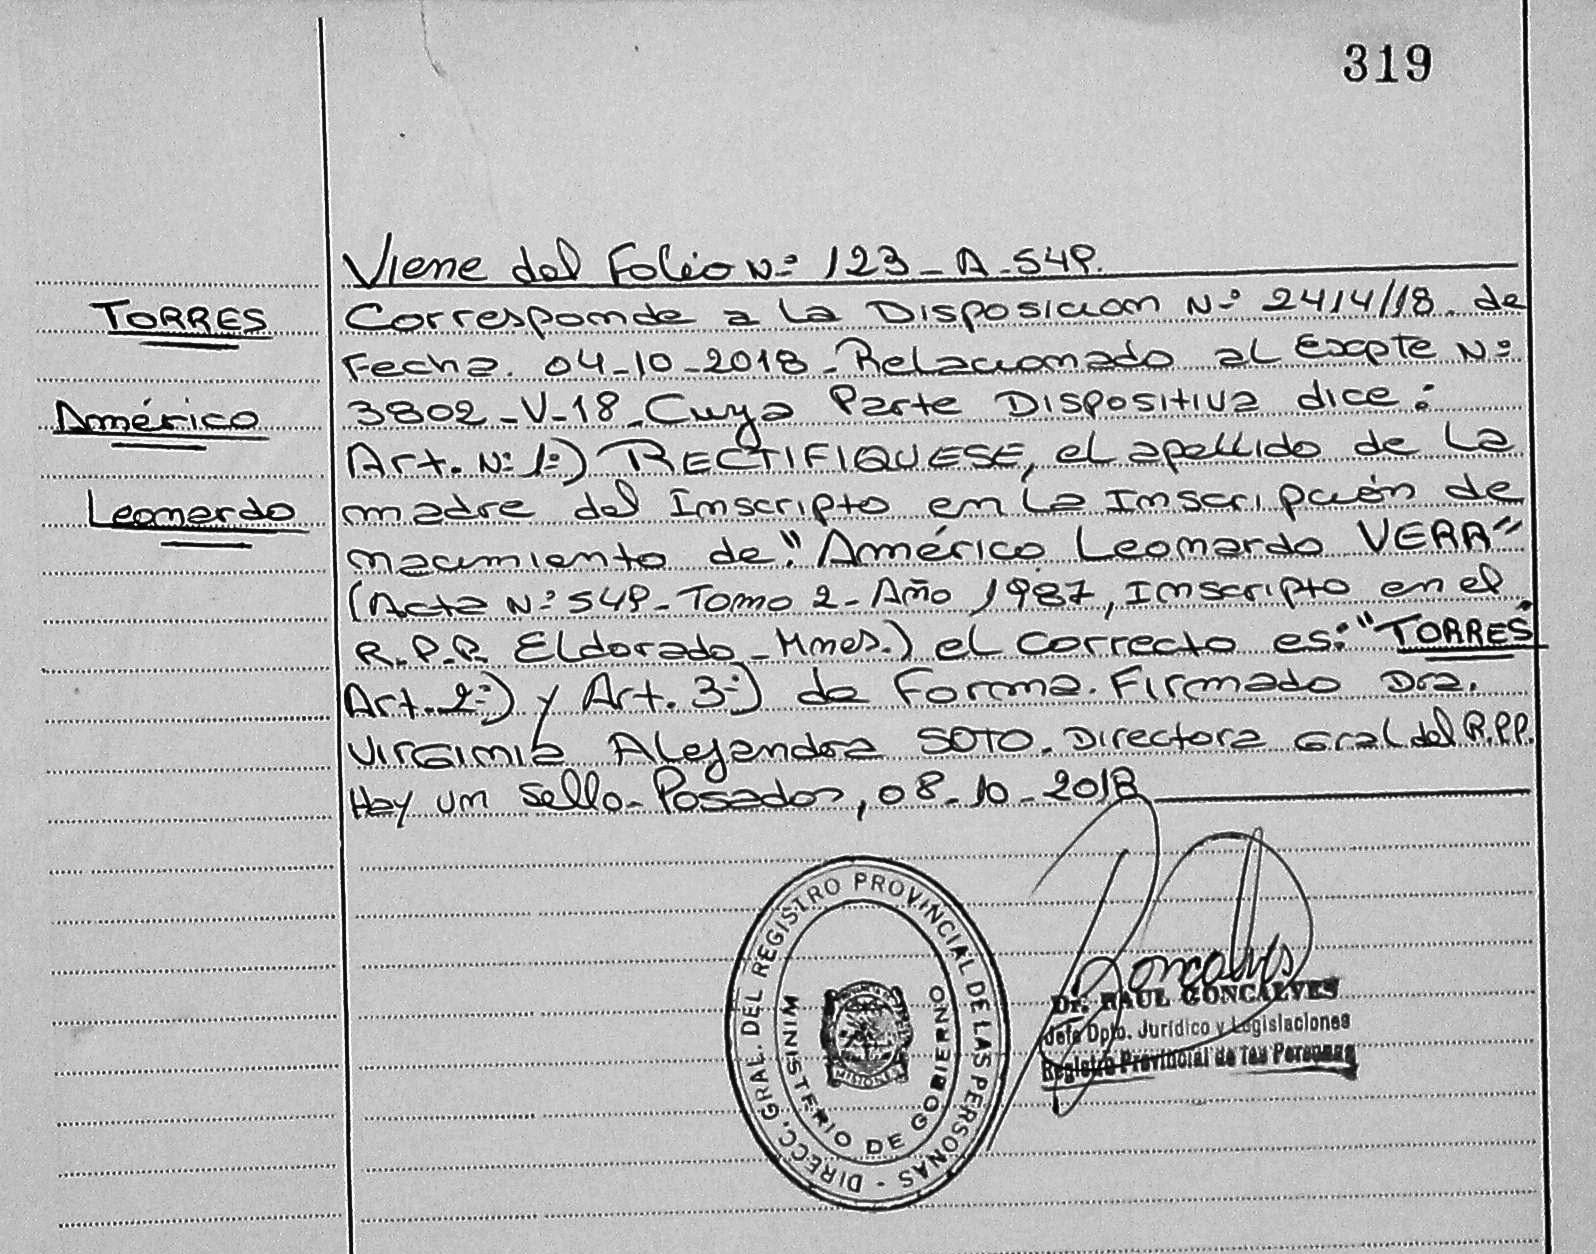 319
Viene del Folio N:º 123-A-549.
TORRES
Américo
Leonardo
Corresponde a la Disposición N:º 2414/18. de
Fecha. 04-10-2018-Relacionado al Expte N:º
3802-V-18-Cuya Parte Dispositiva dice:
Art. N:º 1:º) RECTIFIQUESE, el apellido de la
madre del Inscripto en la Inscripción de
nacimiento de "Américo Leonardo VERA"
(Acta N:º 549-Tomo 2-Año 1987, Inscripto en el
R.P.P. Eldorado-Mnes.) el correcto es: "TORRES"
Art. 2:º) y Art. 3:º) de Forma. Firmado Dra.
Virginia Alejandra SOTO. Directora Gral del R.P.P.
Hay un sello-Posadas, 08-10-2018
DIRECC. GRAL. DEL REGISTRO PROVINCIAL DE LAS PERSONAS -
MINISTERIO DE GOBIERNO
MISIONES
Goncalves
Dr. RAUL GONCALVES
Jefe Dpto. Jurídico y Legislaciones
Registro Provincial de las Personas